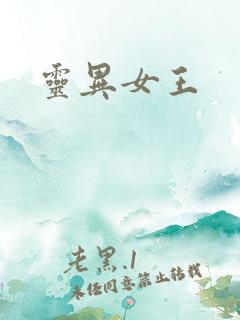 靈異女王
老黑.1
未經同意禁止轉載